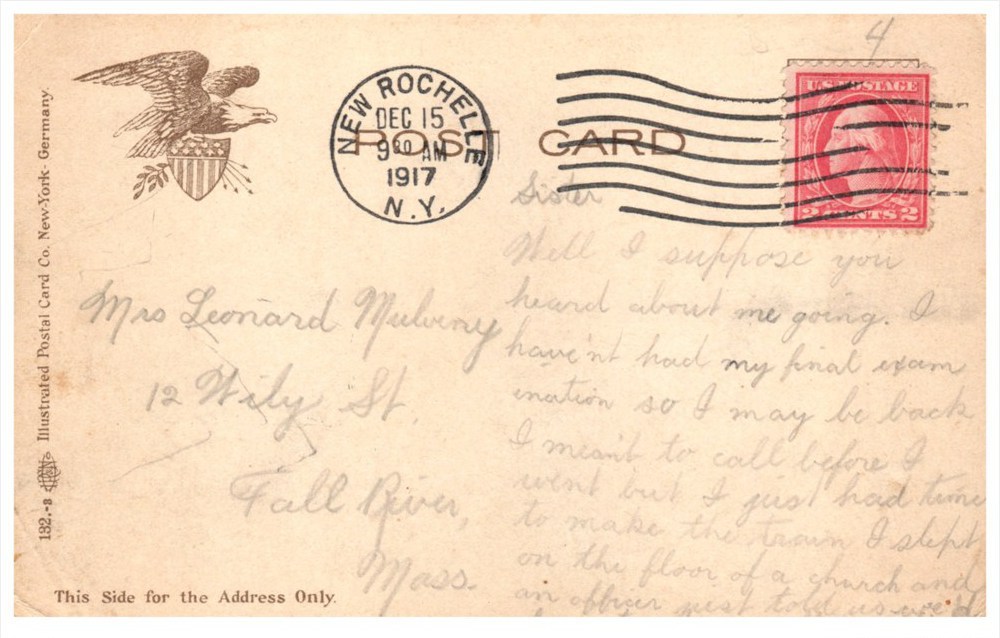 4
U.S. POSTAGE
2 CENTS 2
NEW ROCHELLE
DEC 15
9 30 AM
1917
N.Y.
POST CARD
Illustrated Postal Card Co. New-York- Germany.
132.-B
Mrs Leonard Mulveny
12 Wily St.
Fall River,
Mass.
This Side for the Address Only.
Sister
Well I suppose you
heard about me going. I
have'nt had my final exam
ination so I may be back
I meant to call before I
went but I just had time
to make the train I slept
on the floor of a church and
an officer just told us we'd